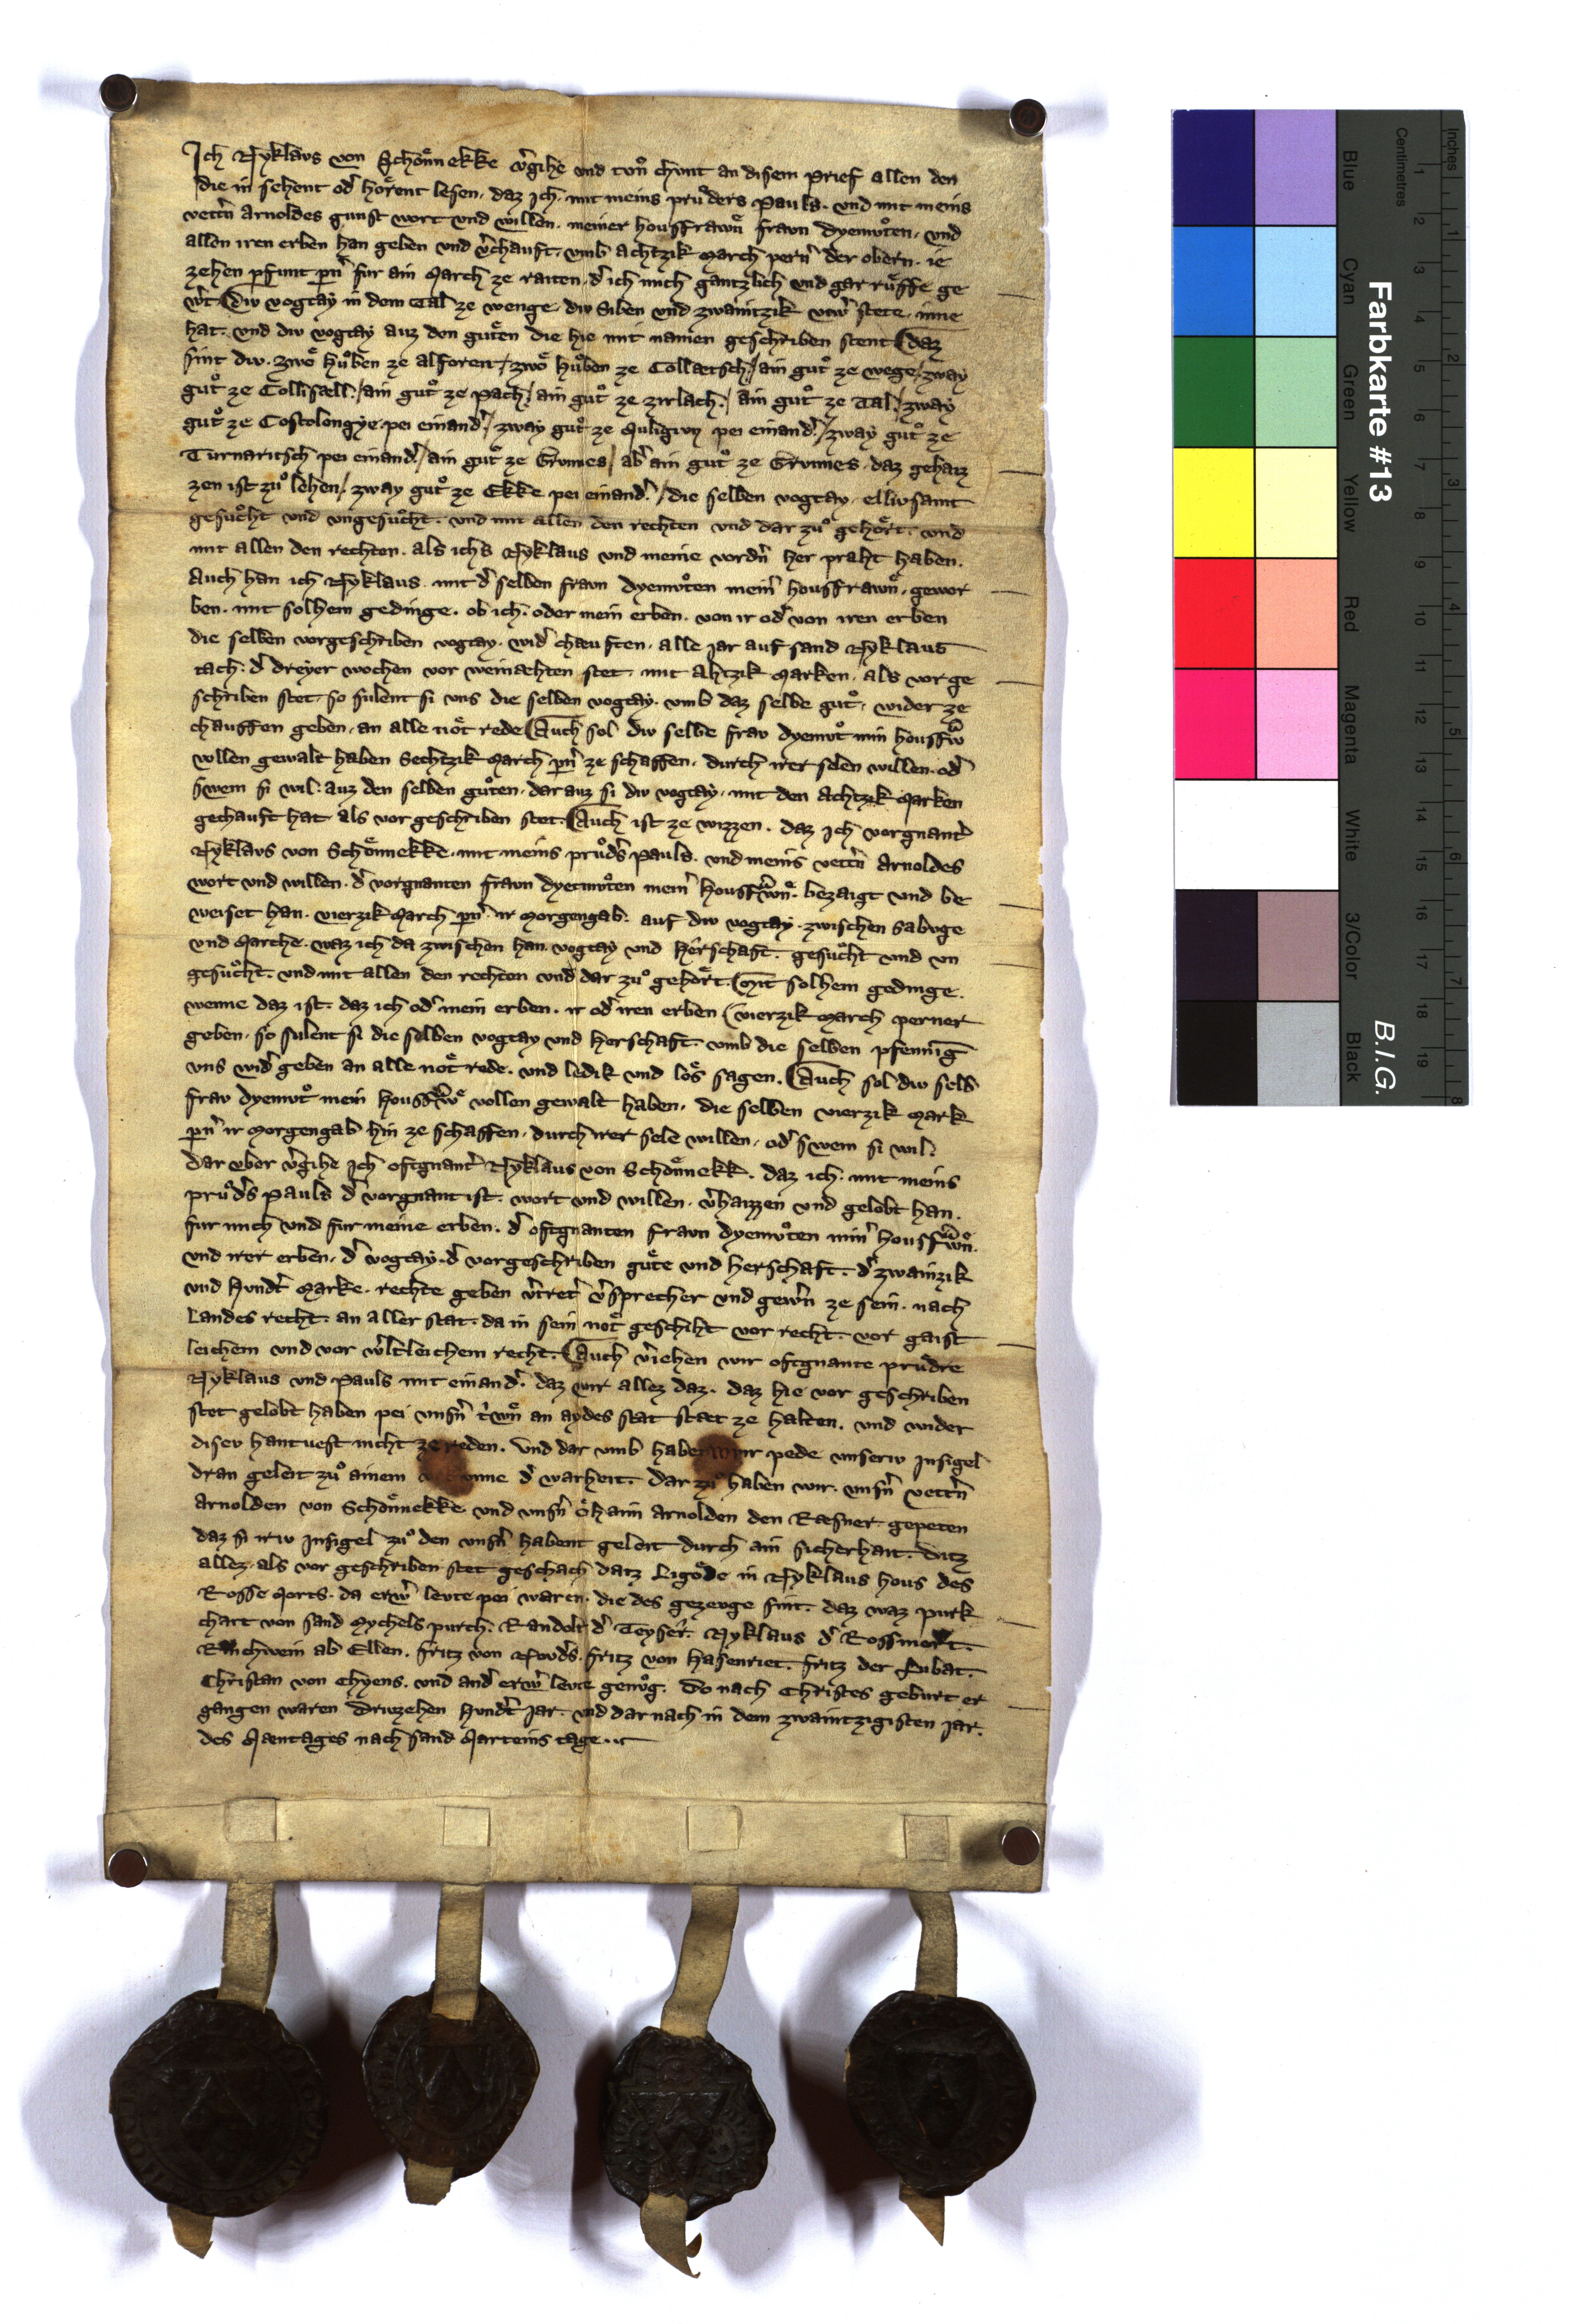 Ich Nyklaus von Schoͤnnekke v̉gihe vnd tvͦn chvnt an disem prief allen den
die in sehent od̉ hoͤrent lesen. daz Ich. mit meins pruͦders Pauls. vnd mit meins
vettn̉ Arnoldes gunst wort vnd willen. meiner housfrawnͤ fravn Dyemvͦten. vnd
allen iren erben han geben vnd v̉chauft. vmb Achtzik March pern̉ der obern. ie
zehen pfunt pn̉ fur ain March ze raiten. d̉ ich mich gantzlich vnd gar ruͤffe ge
w̉t. Div vogtay in dem Tal ze wenge. div Siben vnd zwaintzik viw̉ stete. inne
hat. vnd div vogtay auz den guͤten die hie mit namen geschriben stent. Daz
sint div. zwoͤ Huͦben ze alforen. / zwoͤ Huͦben ze Collaetsch. / ain guͦt ze wege. / zway
guͦt ze Collisaell. / ain guͦt ze Pach. / ain guͦt ze zirlach. / ain guͦt ze Tal. / zway
guͦt ze Costolongye. pei einand̉. / zway guͦt ze Muligivn pei einand̉. / zway guͦt ze
Turnaritsch pei einand̉. / ain guͦt ze Grvmes / ab̉ ain guͦt ze Grvmes. daz gehaiz
zen ist zuͦ lehen. / zway guͦt ze Ekke pei einand̉. / die selben vogtay. ellivsamt
gesuͦcht vnd vngesuͦcht. vnd mit allen den rechten vnd dar zuͦ gehoͤrt. vnd
mit allen den rechten. als ichs Nyklaus vnd meine vordn̉ her praht haben.
Auch han ich Nyklaus mit d̉ selben fravn Dyemvͦten mein̉ housfrawnͤ. gewor
ben. mit solhem gedinge. ob ich. oder mein erben. von ir od̉ von iren erben
die selben vorgeschriben vogtay. wid̉ chauften. alle jar auf sand Nyklaus
tach. d̉ dreyer wochen vor weinachten stet. mit Ahtzik Marken. als vor ge
schriben stet. so sulent si vns die selben vogtay. vmb daz selbe guͦt. wider ze
chauffen geben. an alle noͤt rede. Auch sol div selbe frav Dyemvͦt min housfw̉
vollen gewalt haben Sechtzik March pn̉ ze schaffen. durch irer selen willen. od̉
swem si wil. auz den selben guͦten. dar auz si div vogtay. mit den Achtzik Marken
gechauft hat als vor geschriben stet. Auch ist ze wizzen. daz Ich vorgnant̉
Nyklavs von Schoͤnnekke. mit meins pruͦd̉s Pauls. vnd meins vettn̉ Arnoldes
wort vnd willen. d̉ vorgnanten fravn Dyetmvͦten mein̉ housfw̉nͤ. bezaigt vnd be
weiset han. vierzik March pn̉ ir Morgengab. auf div vogtay. zwischen Sabvge
vnd Marche. waz ich da zwischen han. vogtay vnd Herschaft. gesuͦcht vnd vn
gesuͦcht. vnd mit allen den rechten vnd dar zuͦ gehoͤrt. Mit solhem gedinge.
wenne daz ist. daz ich od̉ mein erben. ir od̉ iren erben vierzik March perner
geben. so sulent si die selben vogtay vnd Herschaft. vmb die selben pfennig
vns wid̉ geben an alle noͤt rede. vnd ledik vnd loͤs sagen. Auch sol div selb
frav Dyemvͦt mein housfw̉ͤ vollen gewalt haben. die selben vierzik Mark
pn̉ ir Morgengab hin ze schaffen. durch irer sele willen. od̉ swem si wil.
Dar vber v̉gihe Ich oftgnant̉ Nyklaus von Schoͤnnekk. daz ich. mit meins
pruͦd̉s Pauls d̉ vorgnant ist. wort vnd willen. v̉haizzen vnd gelobt han.
fur mich vnd fur meine erben. d̉ oftgnanten fravn Dyemvͦten min̉ housfw̉nͤ.
vnd irer erben. d̉ vogtay. d̉ vorgeschriben guͤte vnd herschaft. d̉ zwainzik
vnd Hvndt̉ Marke. rechte geben v̉tret̉ v̉sprecher vnd gew̉n ze sein. nach
Landes recht. an aller stat. da in sein noͤt geschiht vor recht. vor gaist
leichem vnd vor w̉ltleichem recht. Auch v̉iehen wir oftgnante pruͤdre
Nyklaus vnd Pauls mit einand̉. daz wir allez daz. daz hie vor geschriben
stet gelobt haben pei vnsn̉ t̉wnͤ an aydes stat staet ze halten. vnd wider
diser hantuest nicht ze reden. Vnd dar vmb haben wir pede vnseriv Insigel
dran geleit zuͦ ainem vrkunne d̉ warheit. Dar zuͦ haben wir. vnsn̉ vettn̉
Arnolden von Schoͤnnekke vnd vnsn̉ oͤhaim Arnolden den Raesner. gepeten
daz si iriv Insigel zuͦ den vnsn̉ habent geleit durch ain sicherhait. Ditz
allez als vor geschriben stet geschach datz Ligoͤde in Nyklaus hous des
Rosse Morts. da erw̉ levte pei waren. die des gezevge sint. daz waz purk
chart von sand Mychels purch. Randolt d̉ Teyser̉. Nyklaus d̉ Rossmort.
Reichwein ab Ellen. fritz von Novd̉s. fritz von Hasenriet. fritz der Lubat.
Christan von Chyens. vnd and̉ erw̉ levte genvͦg. Do nach Christes geburt er
gangen waren Drivzehen Hvndt̉ Jar. vnd dar nach in dem zwaintzigisten Jar.
des Maentages nach sand Marteins tage...
Farbkarte #13
B.I.G.
Inches
Centimetres
1 2 3 4 5 6 7 8
1 2 3 4 5 6 7 8 9 10 11 12 13 14 15 16 17 18 19
Blue
Cyan
Green
Yellow
Red
Magenta
White
3/Color
Black